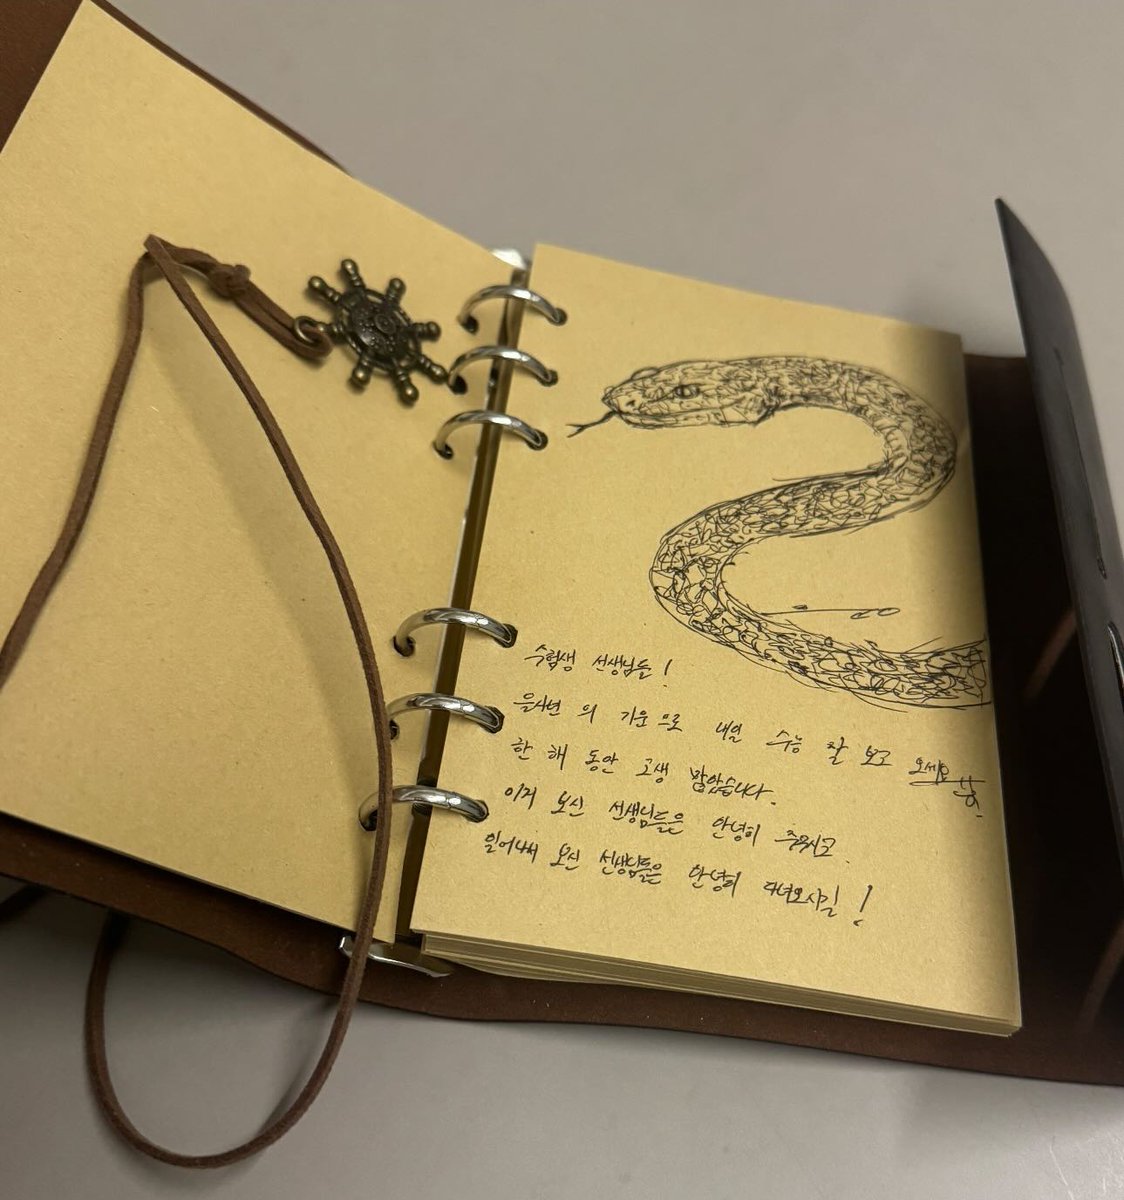 수험생 선생님들!
을사년의 기운으로 내일 수능 잘 보고 오세요
한 해 동안 고생 많았습니다.
이거 보신 선생님들은 안녕히 주무시고.
일어나서 보신 선생님들은 안녕히 다녀오시길!